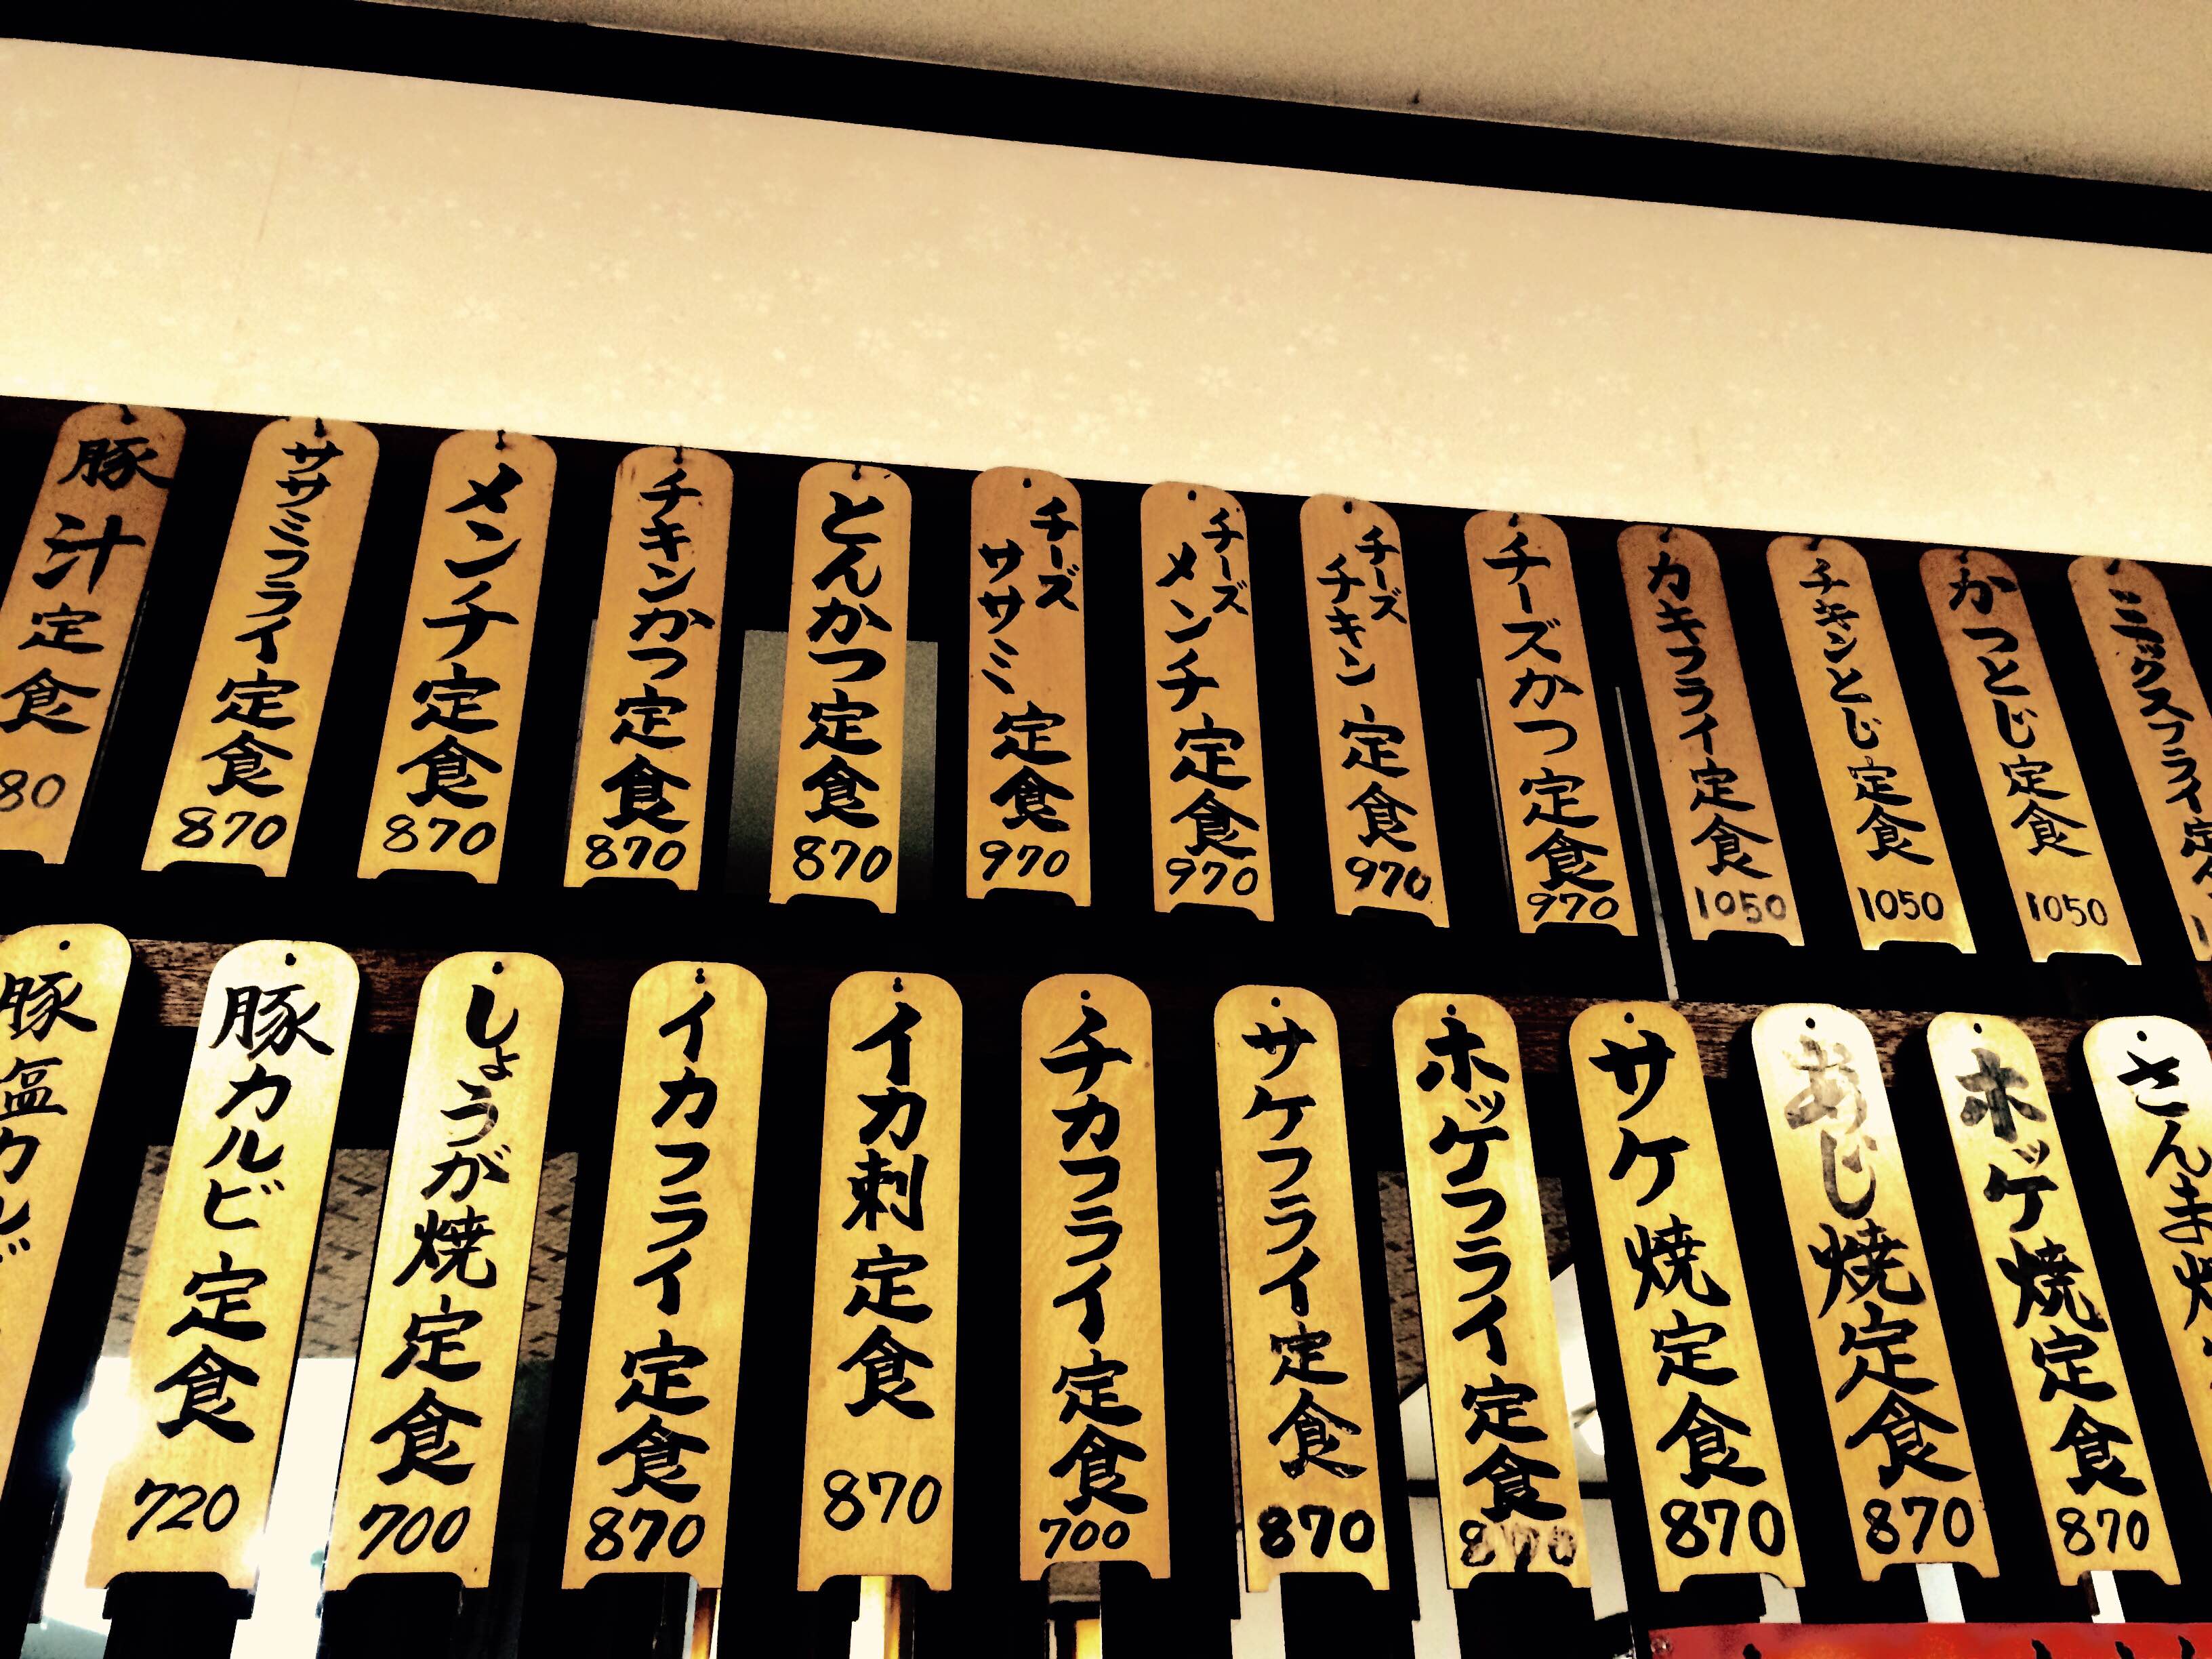 豚汁定食
80
ササミフライ定食
870
メンチ定食
870
チキンかつ定食
870
とんかつ定食
870
チーズ
ササミ定食
970
チーズ
メンチ定食
970
チーズ
チキン定食
970
チーズかつ定食
970
カキフライ定食
1050
チキンとじ定食
1050
かつとじ定食
1050
ミックスフライ定
豚塩カルビ
豚カルビ定食
720
しょうが焼定食
700
イカフライ定食
870
イカ刺定食
870
チカフライ定食
700
サケフライ定食
870
ホッケフライ定食
870
サケ焼定食
870
あじ焼定食
870
ホッケ焼定食
870
さんま焼